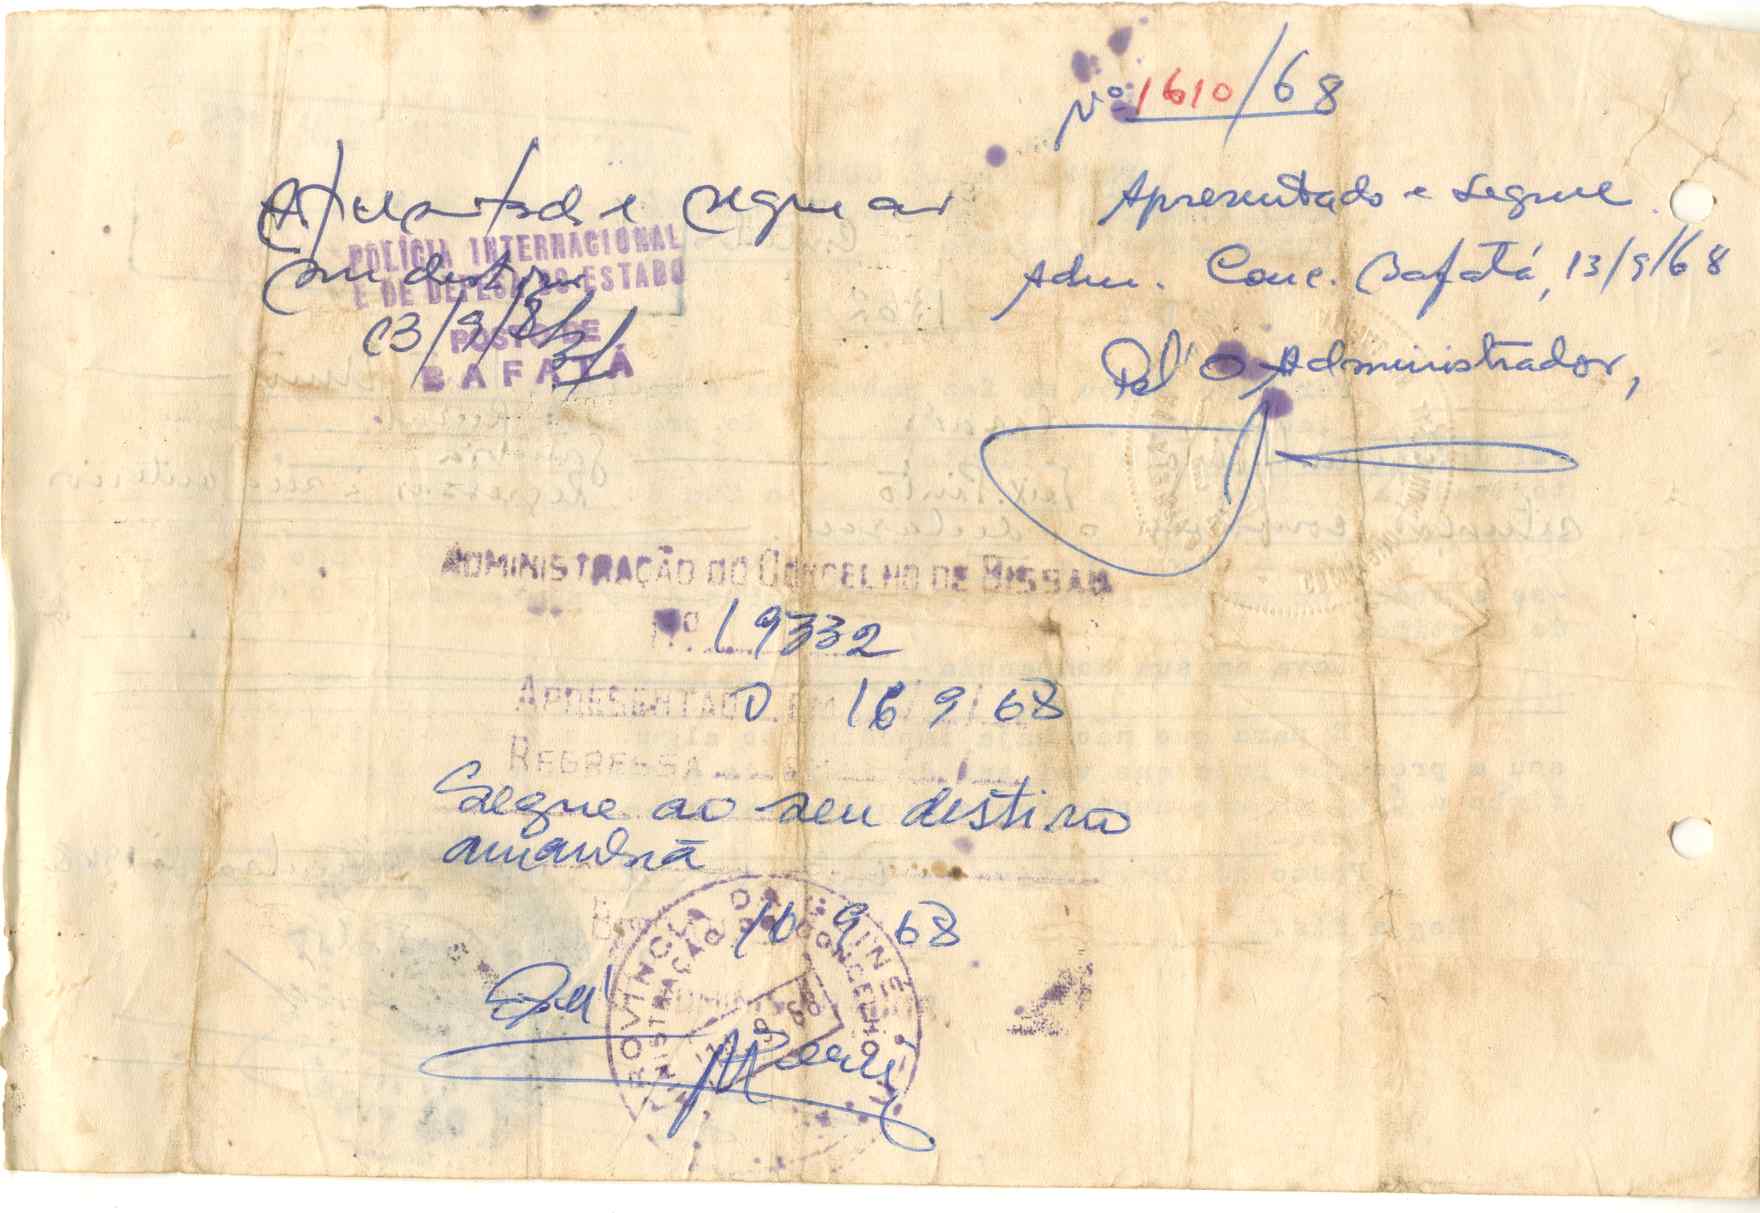 Nº 1610/68
Apresentado e segue
Adm. Conc. Bafatá, 13/9/68
Pel' O Administrador,
Apresentado e segue ao
seu destino
POLÍCIA INTERNACIONAL
E DE DEFESA DO ESTADO
13/9/68
POSTO DE
BAFATÁ
ADMINISTRAÇÃO DO CONCELHO DE BISSAU
Nº 19332
APRESENTADO EM 16 9 68
REGRESSA
Segue ao seu destino
amanhã
16 9 68
Pel'
PROVINCIA DA GUINÉ
ADMINISTRAÇÃO DO CONCELHO